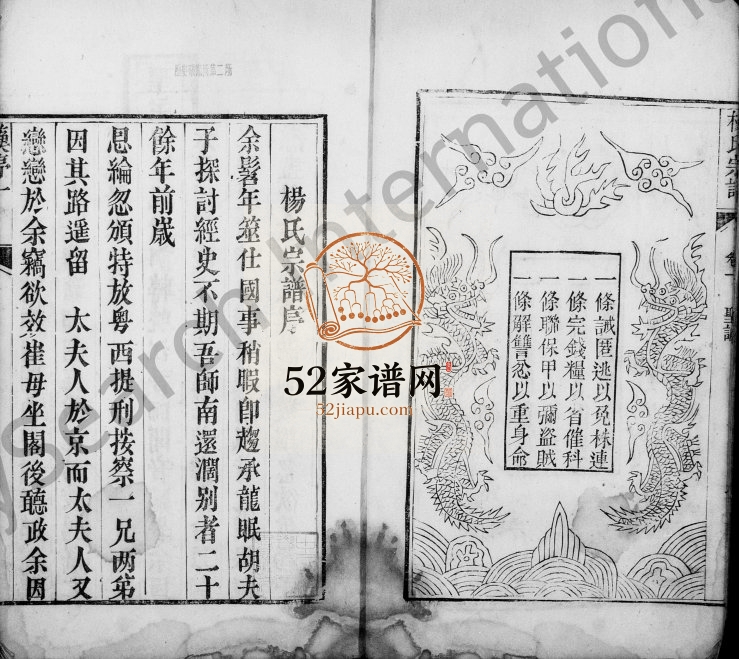 楊氏宗譜
聖諭
一條誡匿逃以免株連
一條完錢糧以省催科
一條聯保甲以彌盜賊
一條解讐忿以重身命
楊氏宗譜序
余髫年筮仕國事稍暇即趨承龍眠胡夫
子探討經史不期吾師南還濶别者二十
餘年前歲
恩綸忽頒特放粤西提刑按察一兄兩弟
因其路遥留　太夫人於京而太夫人又
戀戀於余竊欲效崔母坐閣後聽政余因
52家谱网
52jiapu.com